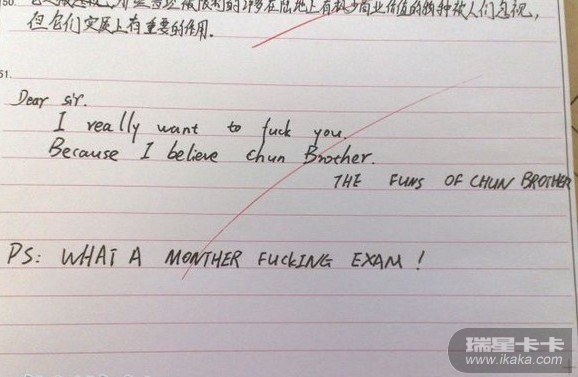 50.
被限制的许多在陆地上有极少商业价值的物种被人们忽视,
但它们实际上有重要的作用.
51.
Dear sir.
I really want to fuck you.
Because I believe chun Brother.
THE FUNS OF CHUN BROTHER
PS: WHAT A MONTHER FUCKING EXAM !
瑞星卡卡
www.ikaka.com